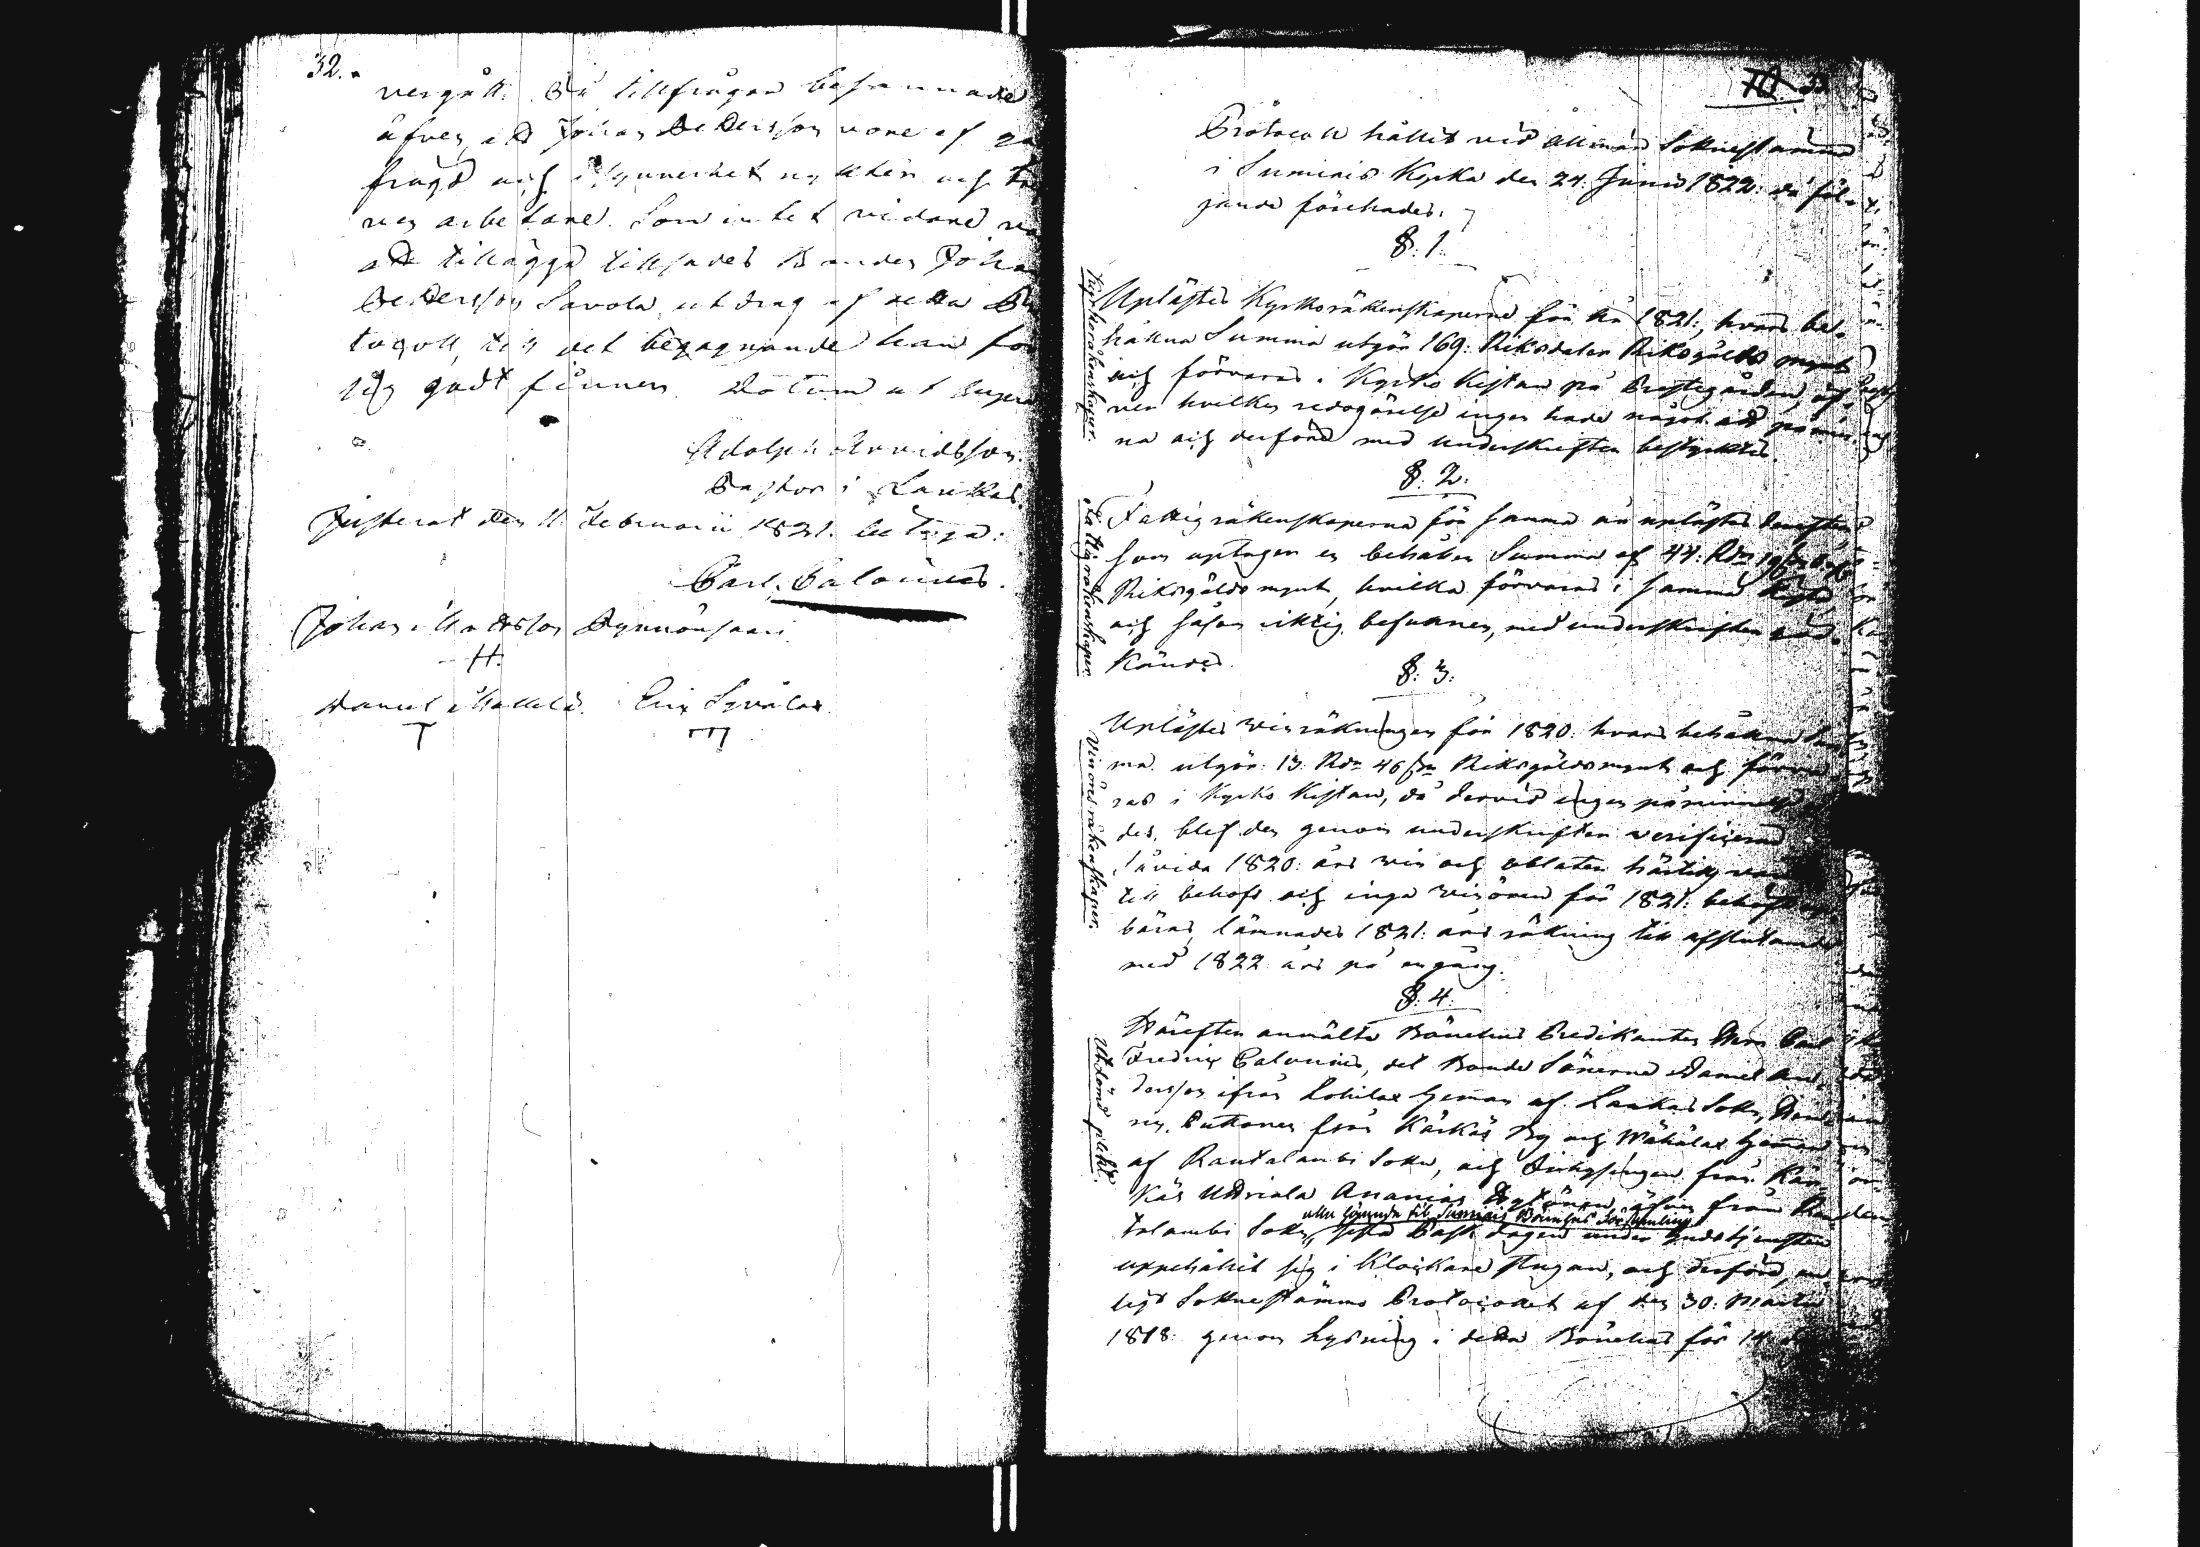 32.
vergått. På tillfrågan besannade
äfven, att Johan Pettersson vore af
frägd och i synnerhet nykter och
ven arbetare. Som intet vidare
att tillägga tillsades Bonden Johan
Pettersson Savola utdrag af detta
tocoll, till det begagnande han för
sig godt finner. Datum ut supra
Adolph Arvidsson.
Pastor i Laukas.
Justerat den 11. Februarii 1821. betyga:
Carl. Calonius.
Johan Mattsson Pynnönsaari.
H.
Daniel Mattila. Eric Syvälax.
33
Protocoll hållit vid allmän Soknestämma
i Suminis Kyrka den 24. Junii 1822. då föl-
jande förehades.
§. 1.
Kyrkoräkenskaper.
Uplästes Kyrkoräkenskaperna för år 1821., hvars be-
hållna Summa utgör 169. Riksdaler Riksgälds mynt
och förvaras i Kyrko Kistan på Prestegården, öf-
ver hvilken redogörelse ingen hade något att påmin-
na och derföre med underskriften bestyrktes.
§. 2.
Fattigräkenskaper
Fattigräkenskaperna för samma år uplästes derefter,
som uptager en behållen Summa af 44. Rdr
Riksgälds mynt, hvilka förvaras i samma Kista,
och såsom riktig befunnen, med underskriften god-
Kändes.
§. 3.
Vinöresräkenskaper.
Uplästes Vinräkningen för 1820. hvars behållna Sum-
ma utgör. 13. Rdr 46 sk. Riksgäldsmynt och förva-
ras i Kyrko Kistan, då dervid ingen påminnelse
des, blef den genom underskriften verifiçerad
Såvida 1820. års vin och oblater
till behof och inga vinören för 1821. behöft upp-
bäras, lämnades 1821. års räkning till afslutande
med 1822. års på en gång.
§. 4.
Utdömd plikt.
Härefter anmälte Bönehus Predikanten Herr Carl
Fredric Calonius, det Bonde Sönerne Daniel An-
dersson ifrån Lohilax hemman af Laukas Sokn,
Puttonen från Kärkäs By och Mähälax hemman
af Rautalambi Sokn, och Inhysingen från Kär-
käs Uttriala Ananias Hytönen äfven från Rau-
alla hörande til Suminis Bönehus Församling
talambi Sokn, sista Påsk dagen under Gudstjensten
uppehållit sig i Klockare stugan, och derföre, en-
ligt Sokne stämmo Protocollet af den 30. Martii
1818. genom lysning i detta Bönehus för 14